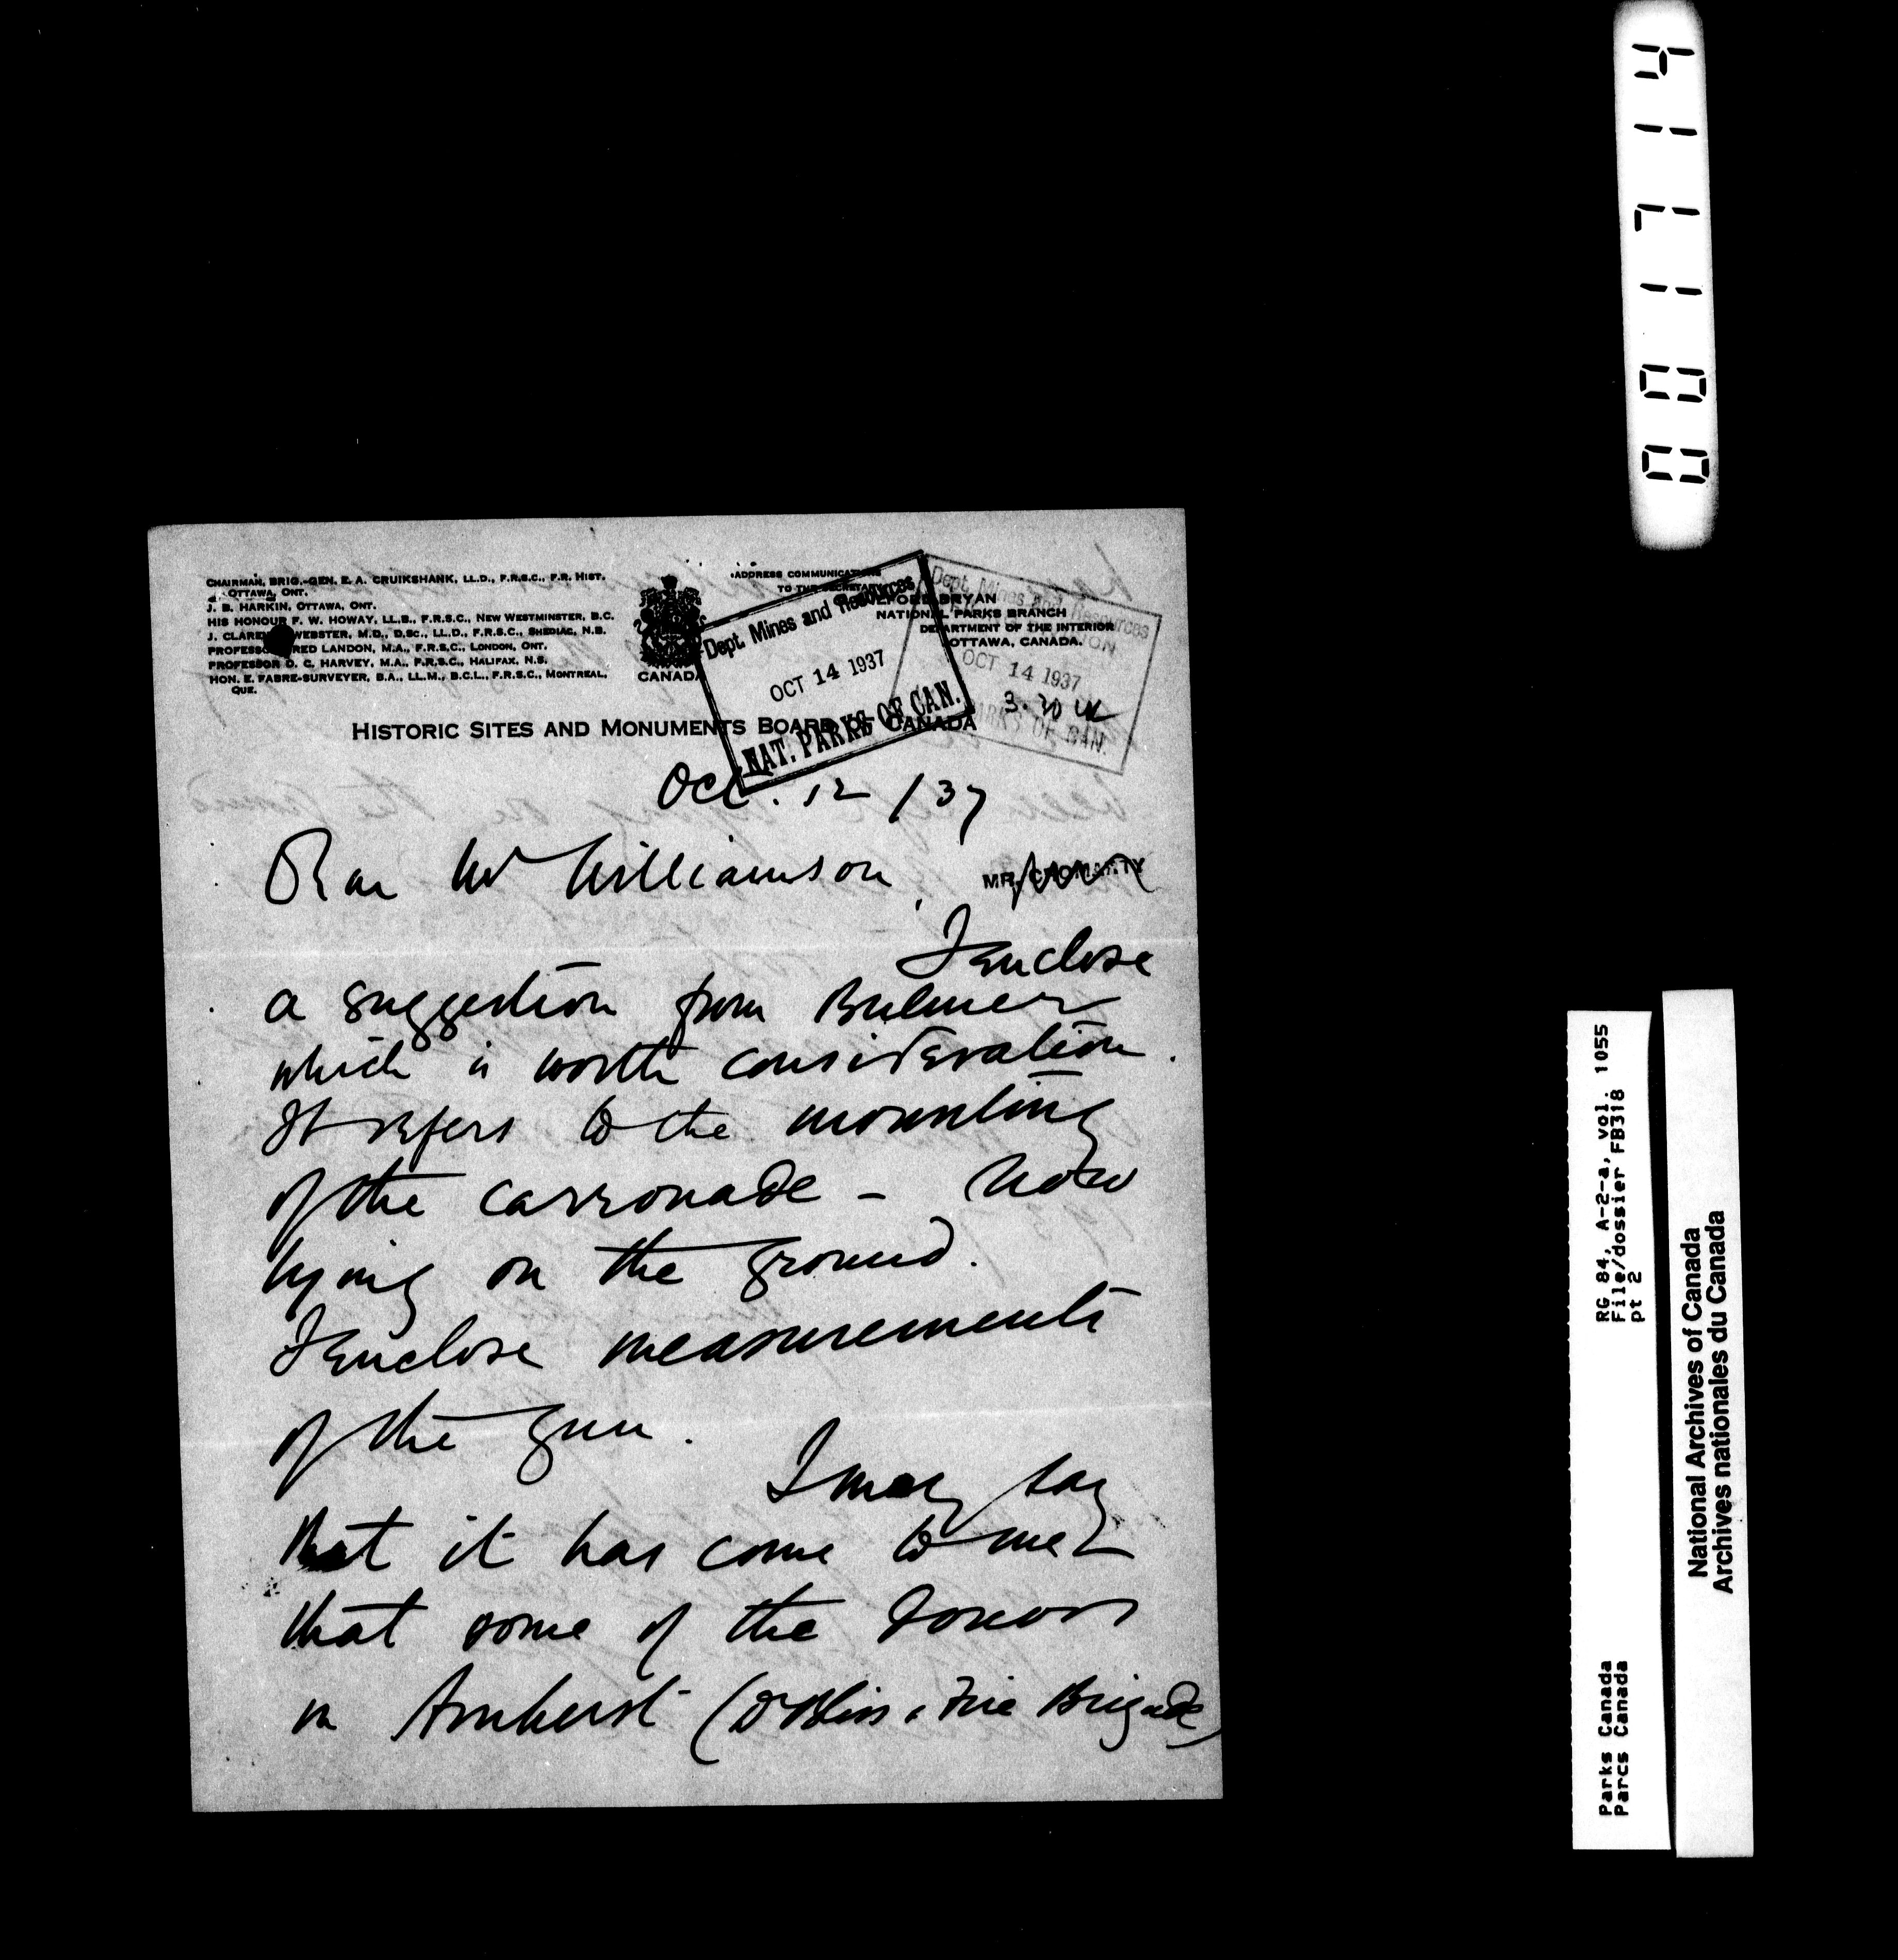 CHAIRMAN, BRIG.-GEN. E. A. CRUIKSHANK, LL.D., F.R.S.C., F.R. HIST.
OTTAWA, ONT.
J. B. HARKIN, OTTAWA, ONT.
HIS HONOUR F. W. HOWAY, LL.B., F.R.S.C., NEW WESTMINSTER, B.C.
J. CLAREN WEBSTER, M.D., D.SC., LL.D., F.R.S.C., SHEDIAC, N.B.
PROFESSO RED LANDON, M.A., F.R.S.C., LONDON, ONT.
PROFESSOR D. C. HARVEY, M.A., F.R.S.C., HALIFAX, N.S.
HON. E. FABRE-SURVEYER, B.A., LL.M., B.C.L., F.R.S.C., MONTREAL,
QUE.
CANADA
ADDRESS COMMUNICATIONS
TO THE SECRETARY
BRYAN
NATIONAL PARKS BRANCH
DEPARTMENT OF THE INTERIOR
OTTAWA, CANADA.
Dept. Mines and Resources
OCT 14 1937
NAT. PARKS OF CAN.
Dept. Mines and Resources
OCT 14 1937
3.30
PARKS OF CAN.
HISTORIC SITES AND MONUMENTS BOARD OF CANADA
Oct. 12 /37
Dear Mr Williamson,
MR. CROMARTY
I enclose
a suggestion from Bulmer
which is worth consideration.
It refers to the mounting
of the carronade - now
lying on the ground.
I enclose measurements
of the gun.
I may say
that it has come to me
that some of the donors
in Amherst (Bliss & Fire Brigade)
001714
RG 84, A-2-a, vol. 1055
File/dossier FB318
pt 2
Parks Canada
Parcs Canada
National Archives of Canada
Archives nationales du Canada